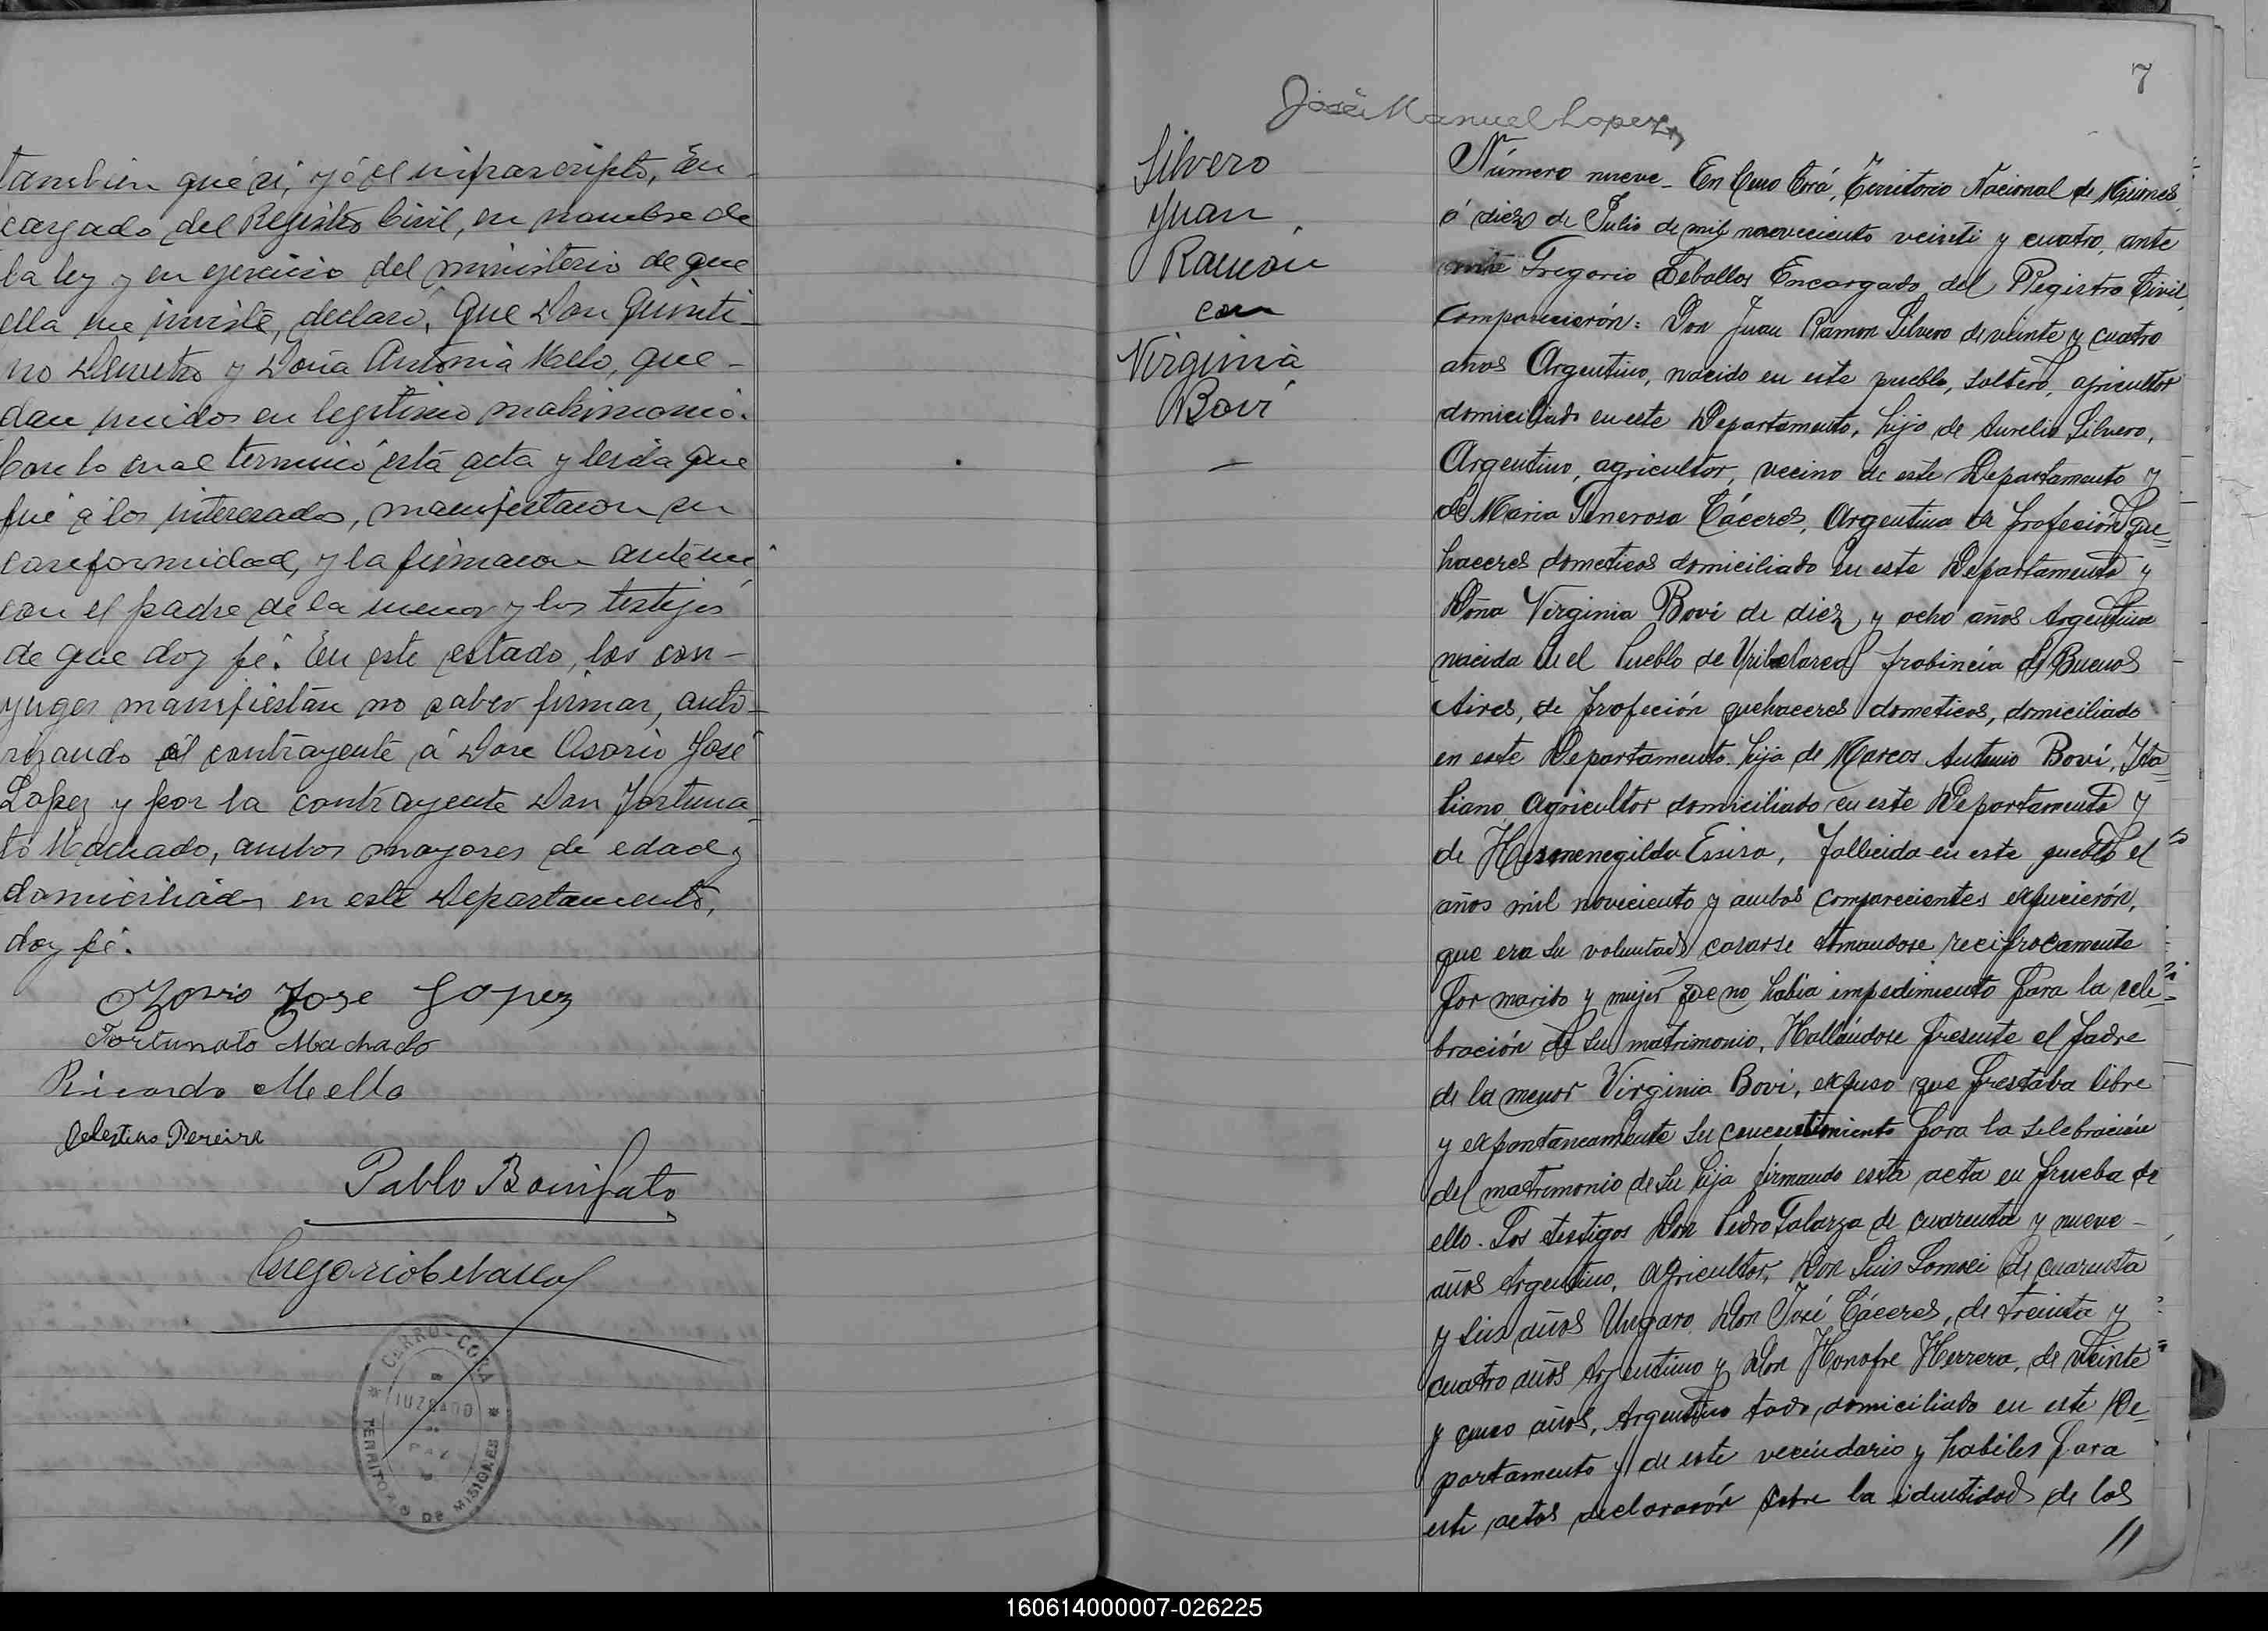 tambien que si, y yó el infrascripto, En-
cargado del Registro Civil, en nombre de
la ley y en ejercicio del ministerio de que
ella me inviste, declaro, Que Don Quinti-
no y Doña Antonia Mello, que-
dan unidos en legitimo matrimonio.
Con lo cual terminó esta acta y leida que
fué á los interesados, manifestaron su
conformidad, y la firmaron ante mi
con el padre de la menor y los testigos
de que doy fé. En este estado, los con-
yuges manifiestan no saber firmar, auto-
rizando el contrayente á Don Osorio José
Lopez y por la contrayente Don Fortuna-
to Machado, ambos mayores de edad y
domiciliados en este Departamento,
doy fé.
Ozorio Jose Lopez
Fortunato Machado
Ricardo Mello
Celestino Pereira
Pablo Bonifato
Gregorio Ceballos
CERRO-CORA
JUZGADO
DE
PAZ
TERRITORIO DE MISIONES
7
José Manuel Lopez
Silvero
Juan
Ramón
con
Virginia
Boví
Número nueve- En Cerro Corá, Territorio Nacional de Misiones
á diez de Julio de mil noveciento veinti y cuatro, ante
Gregorio Ceballos Encargado del Registro Civil,
Comparecierón: Don Juan Ramon Silvero de veinte y cuatro
años Argentino, nacido en este pueblo, soltero, agricultor
domiciliado en este Departamento, hijo de Aurelio Silvero,
Argentino, agricultor, vecino de este Departamento y
de Maria Generosa Cáceres, Argentina de profesión que-
haceres dometicos domiciliado en este Departamento y
Doña Virginia Boví de diez y ocho años Argentina
nacida en el Pueblo de Uribelarea probincia de Buenos
Aires, de profeción quehaceres dometicos, domiciliado
en este Departamento. hija de Marcos Antonio Boví, Ita-
liano, Agricultor domiciliado en este Departamento y
de Hermenegilda, fallecida en este pueblo el
años mil noveciento y ambos comparecientes expucierón,
que era su voluntad casarse tomandose reciprocamente
por marido y mujer que no habia impedimiento para la cele-
bración de su matrimonio, Hallándose presente el padre
de la menor Virginia Bovi, expuso que prestaba libre
y expontaneamente su concentimiento para la selebración
del matrimonio de su hija firmando esta acta en prueba de
ello. Los testigos Don Pedro Galarza de cuarenta y nueve-
años Argentino, agricultor, Don Luis de cuarenta
y seis años Ungaro Don José Cáceres, de treinta y
cuatro años Argentino y Don Honofre Herrera, de veinte
y cinco años, Argentino todo, domiciliado en este De-
partamento y de este vecindario y habiles para
este actos declararón sobre la identidad de los
11
160614000007-026225